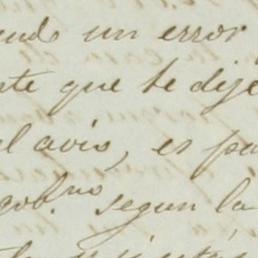 endo un error
te que te dije
l aviso, es pa
gob.no segun la